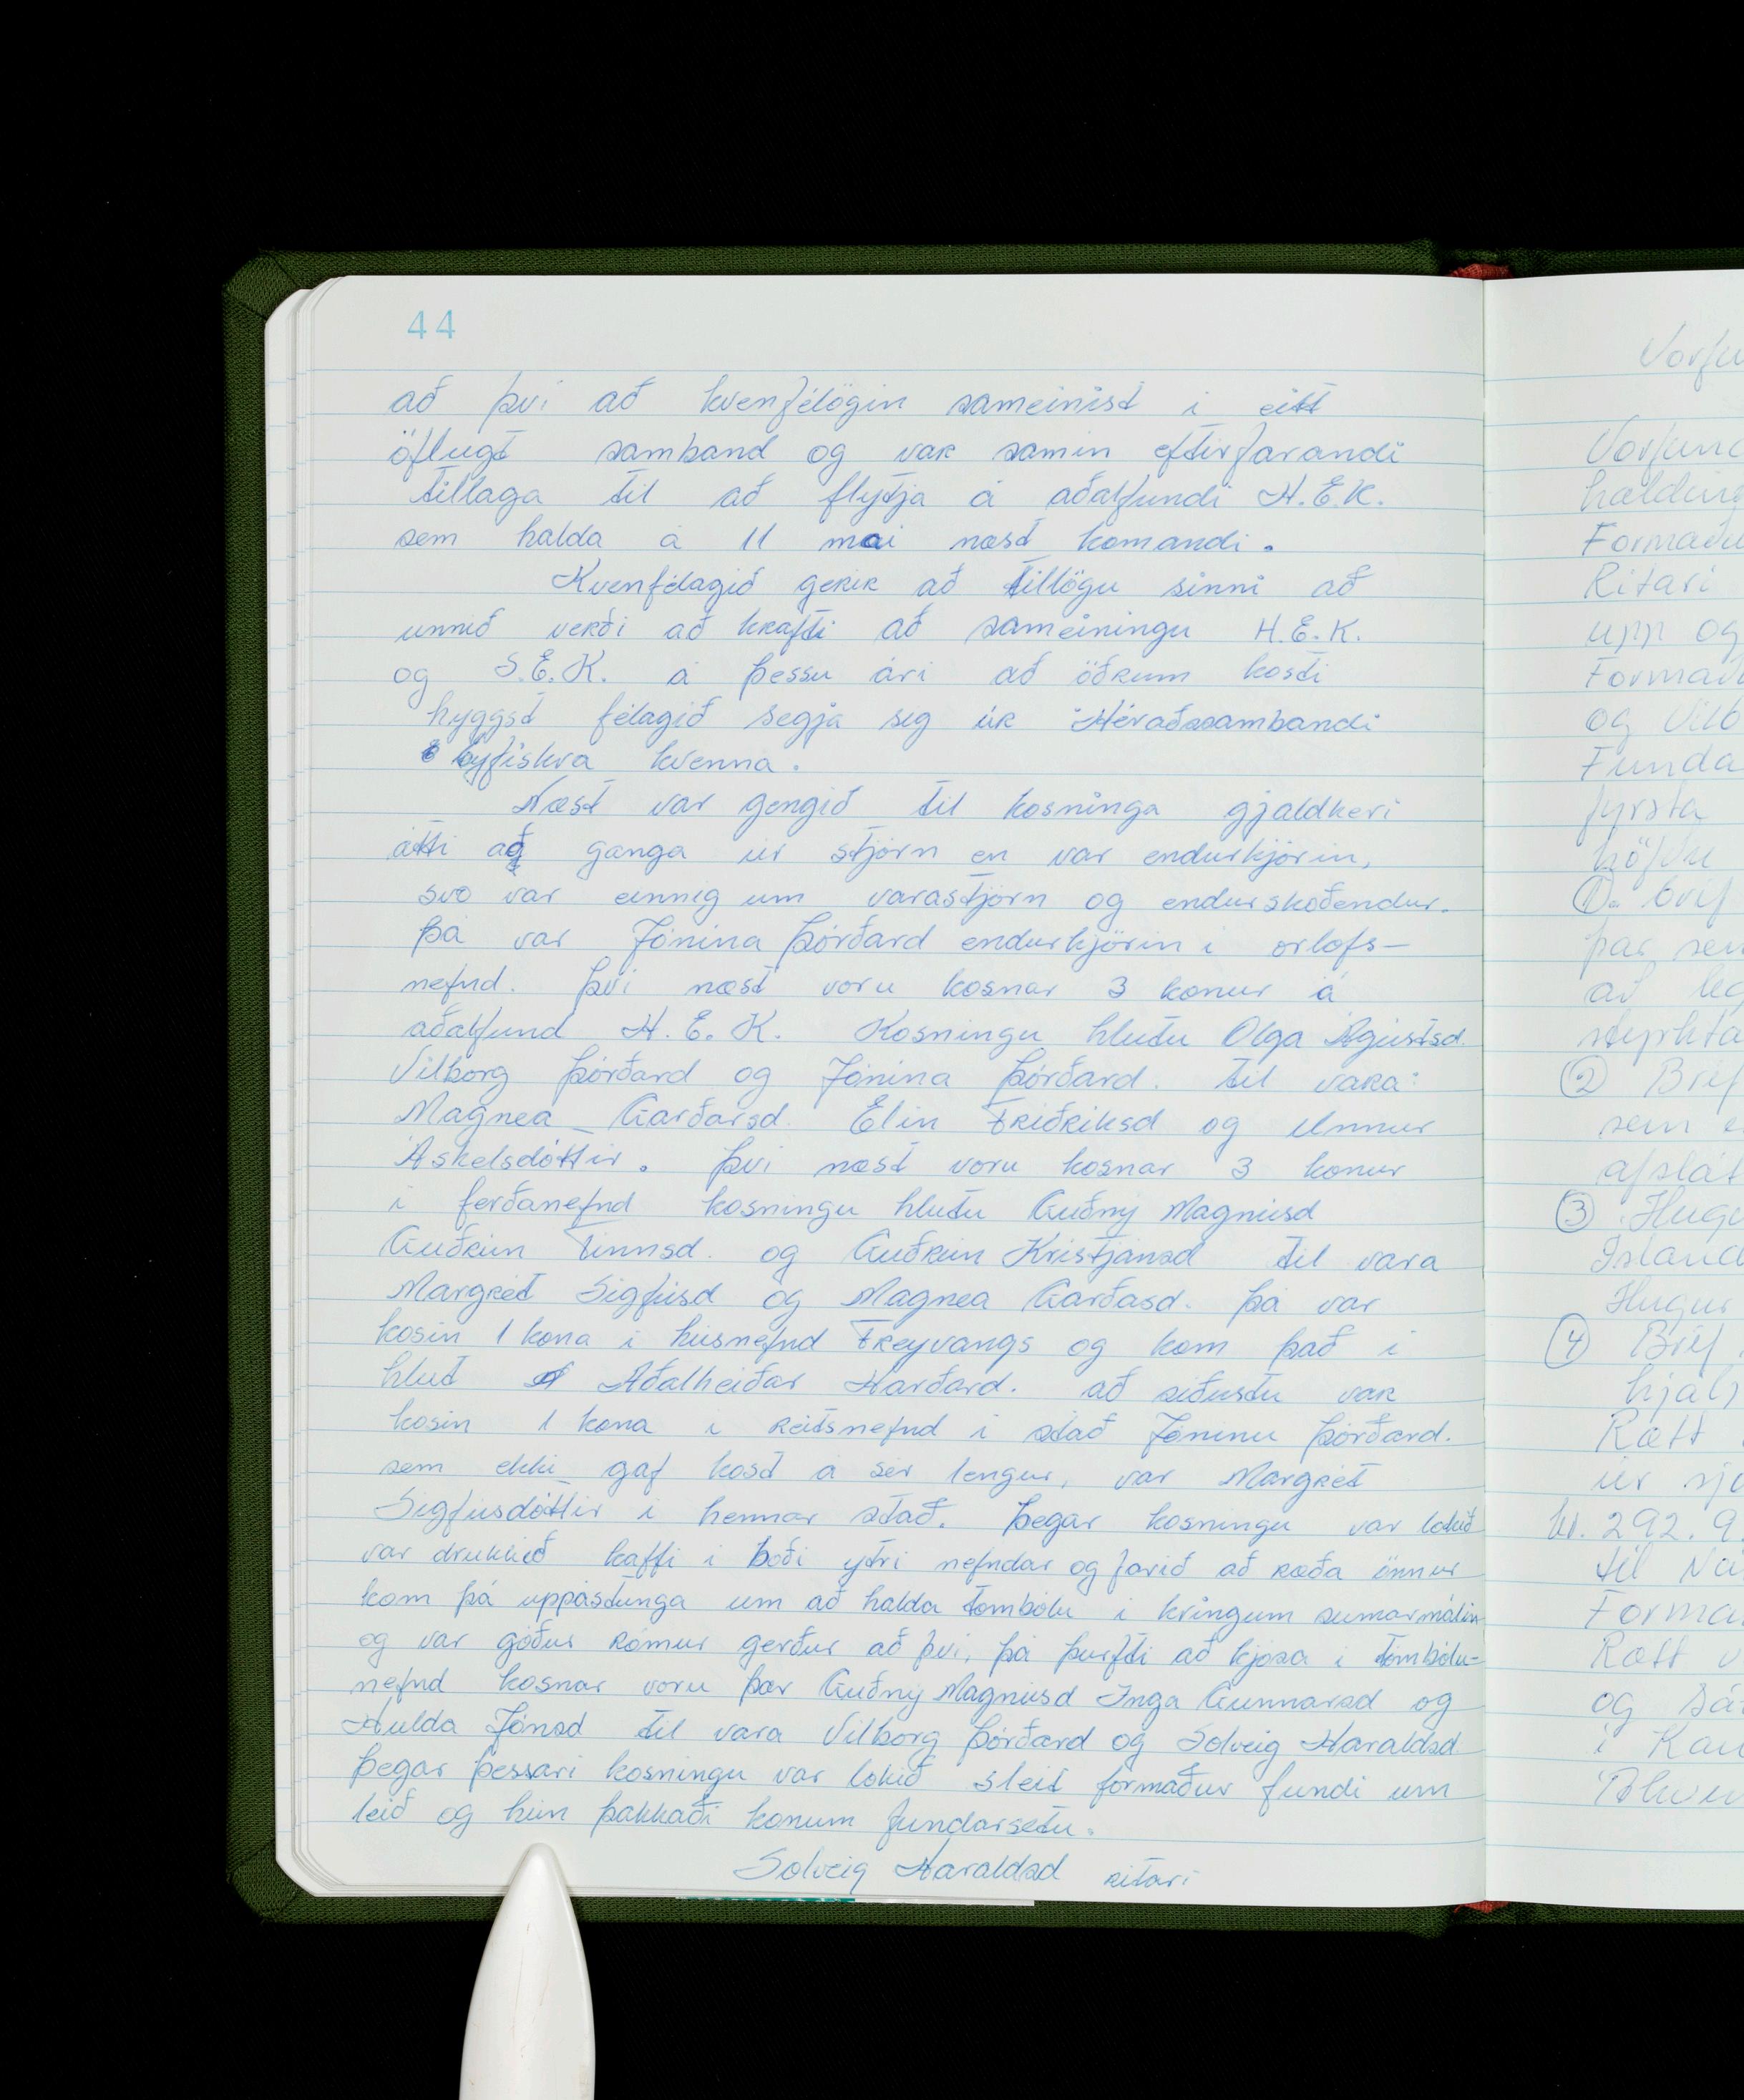 44
að því að kvenfélögin sameinist í eitt
öflugt samband og var samin eftirfarandi
tillaga til að flytja á aðalfundi H.E.K.
sem halda á 11 mai næst komandi.
Kvenfélagið gerir að tillögu sinni að
unnið verði að krafti að sameiningu H.E.K.
og S.E.K. á þessu ári að öðrum kosti
hyggst félagið segja sig úr Héraðssambandi
eyfiskra kvenna.
Næst var gengið til kosninga gjaldkeri
átti að ganga úr stjórn en var endurkjörin,
svo var einnig um varastjórn og endurskoðendur.
Þá var Jónína Þórðard endurkjörin í orlofs-
nefnd. Því næst voru kosnar 3 konur á
aðalfund H.E.K. Kosningu hlutu Olga Ágústsd.
Vilborg Þórðard og Jónína Þórðard. til vara:
Magnea Garðarsd. Elín Friðriksd og Unnur
Áskelsdóttir. Því næst voru kosnar 3 konur
í ferðanefnd kosningu hlutu Guðný Magnúsd
Guðrún Finnsd. og Guðrún Kristjánsd til vara
Margrét Sigfúsd og Magnea Garðasd. Þá var
kosin 1 kona í húsnefnd Freyvangs og kom það í
hlut Aðalheiðar Harðard. að síðustu var
kosin 1 kona í reitsnefnd í stað Jónínu Þórðard.
sem ekki gaf kost á sér lengur, var Margrét
Sigfúsdóttir í hennar stað. Þegar kosningu var lokið
var drukkið kaffi í boði ytri nefndar og farið að ræða önnur
kom þá uppástunga um að halda tombólu í kringum sumarmálin
og var góður rómur gerður að því, þá þurfti að kjósa í tombólu-
nefnd kosnar voru þær Guðný Magnúsd Inga Gunnarsd og
Hulda Jónsd til vara Vilborg Þórðard og Solveig Haraldsd.
Þegar þessari kosningu var lokið sleit formaður fundi um
leið og hún þakkaði konum fundarsetu.
Solveig Haraldsd ritari
Ritari
upp og
og
Funda
fyrsta
þar
að
② Bréf
sem
③
④ Bréf
Rætt
úr
kr. 292.9
til
Rætt
og
í